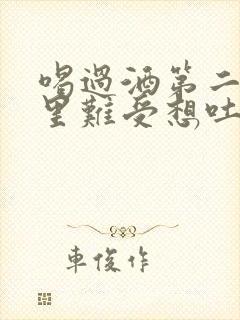 喝過酒第二
里難受想吐
車俊作